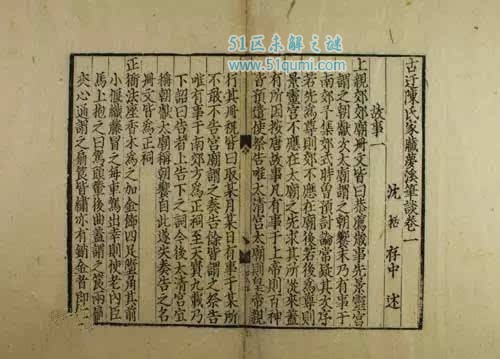 51区未解之谜
www.51qumi.com
古迂陳氏家藏夢溪筆談卷一
沈括存中述
故事一
上親郊郊廟冊文皆曰恭薦歲事先景靈宮
謂之朝獻次太廟謂之朝饗末乃有事于
南郊予集郊式時曾預討論常疑其次序
若先為尊則郊不應在廟後若後為尊則
景靈宮不應在太廟之先求其所從來蓋
有所因按唐故事凡有事于上帝則百神
皆預遣使祭告唯太清宮太廟則皇帝親
行其冊祝皆曰取某月某日有事于某所
不敢不告宮廟謂之奏告餘皆謂之祭告
唯有事于南郊方為正祠至天寶九載乃
下詔曰告者上告下之詞今後太清宮宜
稱朝獻太廟稱朝饗自此遂失奏告之名
冊文皆為正祠
正衙法座香木為之加金飾四足墮角其前
小偃織藤冒之每車駕出幸則使老內臣
馬上抱之曰駕頭輦後曲蓋謂之筤兩扇
夾心通謂之扇筤皆繡亦有銷金者即